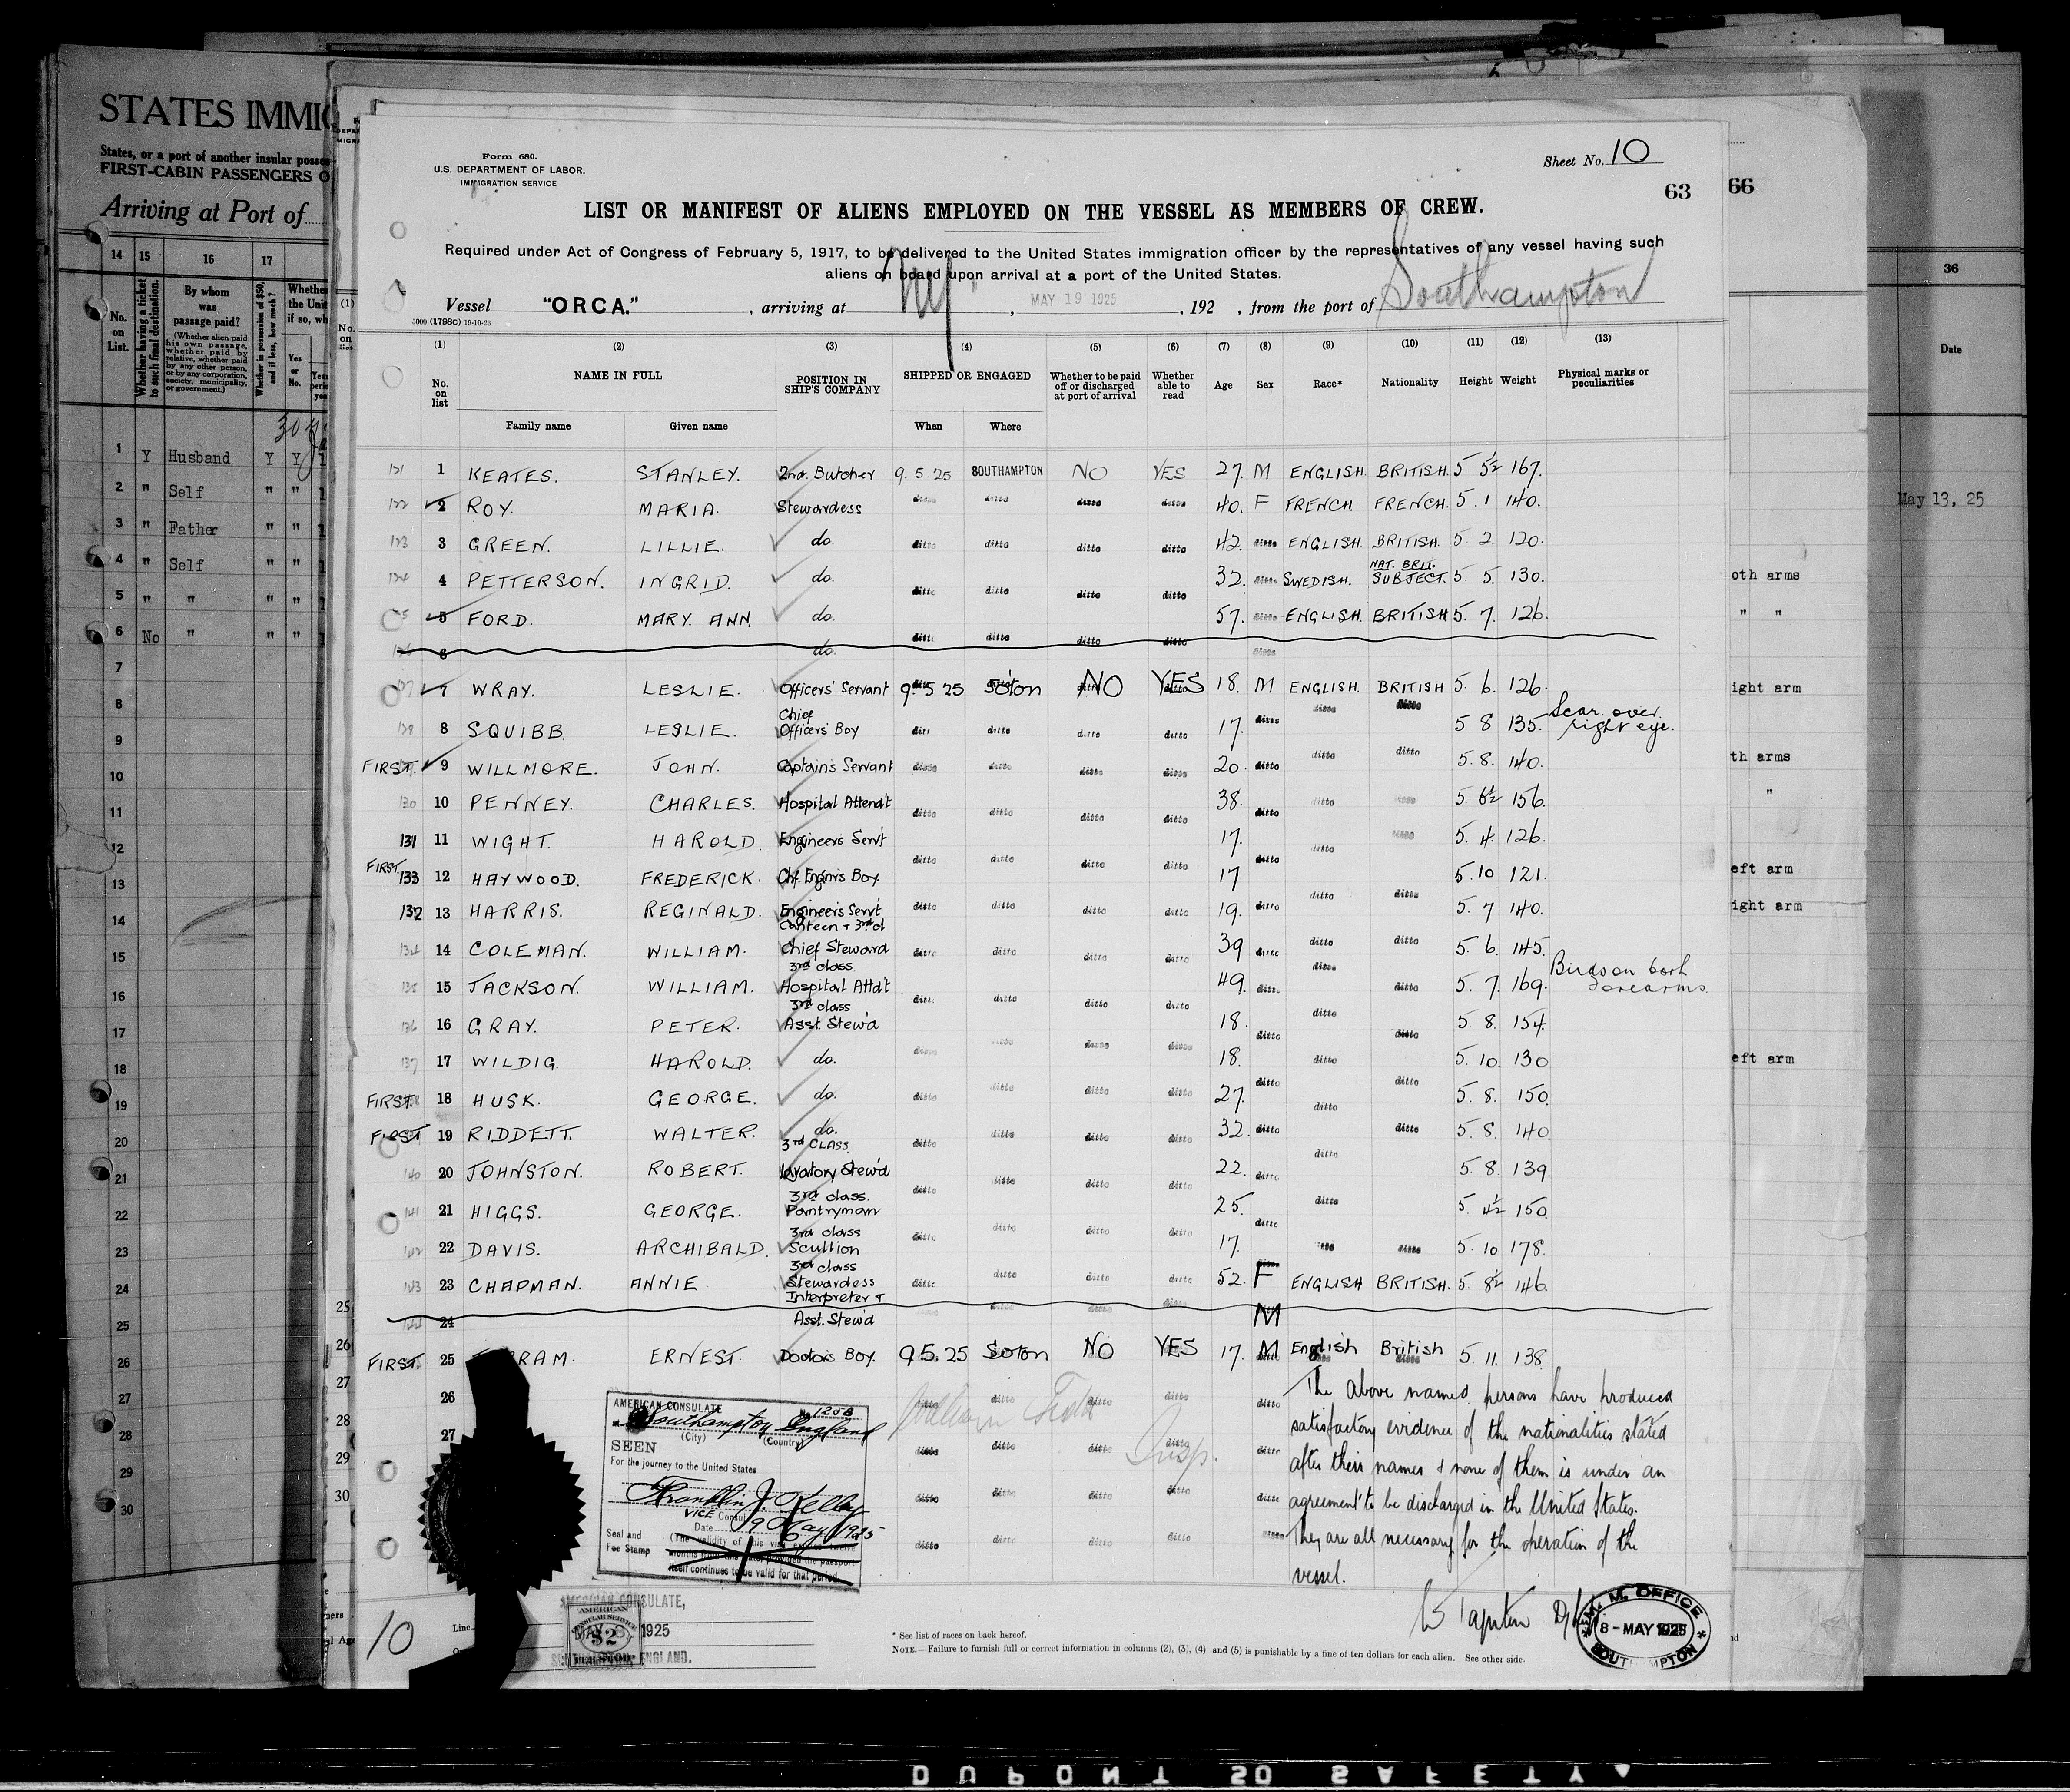 STATES IMMIG
States, or a port of another insular posses
FIRST-CABIN PASSENGERS O
Arriving at Port of
14 15 16 17
No. on List.
Whether having a ticket to such final destination.
By whom was passage paid?
(Whether alien paid his own passage, whether paid by relative, whether paid by any other person, or by any corporation, society, municipality, or government.)
Whether in possession of $50, and if less, how much?
Whether
the Unit
if so, wh
Yes or No.
1 Y Husband Y Y 1
2 " Self " "
3 " Father " "
4 " Self " "
5 " " " "
6 No " " "
7
8
9
10
11
12
13
14
15
16
17
18
19
20
21
22
23
24
25
26
27
28
29
30
Form 680.
U.S. DEPARTMENT OF LABOR.
IMMIGRATION SERVICE
Sheet No. 10
63
66
LIST OR MANIFEST OF ALIENS EMPLOYED ON THE VESSEL AS MEMBERS OF CREW.
Required under Act of Congress of February 5, 1917, to be delivered to the United States immigration officer by the representatives of any vessel having such
aliens on board upon arrival at a port of the United States.
Vessel "ORCA." , arriving at NY , MAY 19 1925 , 192 , from the port of Southampton
5000 (1798C) 19-10-23
(1) (2) (3) (4) (5) (6) (7) (8) (9) (10) (11) (12) (13)
No. on list NAME IN FULL POSITION IN SHIP'S COMPANY SHIPPED OR ENGAGED Whether to be paid off or discharged at port of arrival Whether able to read Age Sex Race* Nationality Height Weight Physical marks or peculiarities
Family name Given name When Where
121 1 KEATES. STANLEY. 2nd. Butcher 9.5.25 SOUTHAMPTON NO YES 27. M ENGLISH. BRITISH. 5 5½ 167.
122 2 ROY. MARIA. Stewardess ditto ditto ditto ditto 40. F FRENCH. FRENCH. 5.1 140.
123 3 GREEN. LILLIE. do. ditto ditto ditto ditto 42. ditto ENGLISH. BRITISH. 5 2 120.
124 4 PETTERSON. INGRID. do. ditto ditto ditto ditto 32. ditto SWEDISH. NAT. BRIT. SUBJECT. 5 5. 130.
5 FORD. MARY ANN. do. ditto ditto ditto ditto 57. ditto ENGLISH. BRITISH 5. 7. 126.
6 do. ditto
7 WRAY. LESLIE. Officers' Servant 9.5 25 So'ton NO YES 18. M ENGLISH. BRITISH 5. 6. 126.
128 8 SQUIBB. LESLIE. Chief Officers' Boy ditto ditto ditto ditto 17. ditto ditto ditto 5 8 135. Scar over right eye.
FIRST. 9 WILLMORE. JOHN. Captain's Servant ditto ditto ditto ditto 20. ditto ditto ditto 5. 8. 140.
130 10 PENNEY. CHARLES. Hospital Attend't ditto ditto ditto ditto 38. ditto ditto ditto 5. 6½ 156.
131 11 WIGHT. HAROLD. Engineers Serv't ditto ditto ditto ditto 17. ditto ditto ditto 5. 4. 126.
FIRST. 133 12 HAYWOOD. FREDERICK. Chf. Engnrs Boy ditto ditto ditto ditto 17 ditto ditto ditto 5.10 121.
132 13 HARRIS. REGINALD. Engineers Serv't ditto ditto ditto ditto 19. ditto ditto ditto 5. 7 140.
134 14 COLEMAN. WILLIAM. Canteen & 3rd Chief Steward ditto ditto ditto ditto 39 ditto ditto ditto 5. 6. 145.
135 15 JACKSON. WILLIAM. 3rd class Hospital Attd't ditto ditto ditto ditto 49. ditto ditto ditto 5. 7. 169. Birds on both forearms
136 16 GRAY. PETER. 3rd class Asst. Stew'd ditto ditto ditto ditto 18. ditto ditto ditto 5 8. 154.
137 17 WILDIG. HAROLD. do. ditto ditto ditto ditto 18. ditto ditto ditto 5. 10. 130
FIRST. 18 HUSK. GEORGE. do. ditto ditto ditto ditto 27. ditto ditto ditto 5. 8. 150.
FIRST 19 RIDDETT. WALTER. do. ditto ditto ditto ditto 32. ditto ditto ditto 5. 8. 140.
140 20 JOHNSTON. ROBERT. 3rd CLASS. Lavatory Stew'd ditto ditto ditto ditto 22. ditto ditto 5. 8. 139.
141 21 HIGGS. GEORGE. 3rd class. Pantryman ditto ditto ditto ditto 25. ditto ditto 5. 4½ 150.
142 22 DAVIS. ARCHIBALD. 3rd class Scullion ditto ditto ditto ditto 17. ditto ditto 5. 10 178.
143 23 CHAPMAN. ANNIE. 3rd class Stewardess ditto ditto ditto ditto 52. F ENGLISH BRITISH. 5. 8½ 146.
144 24 Interpreter & Asst. Stew'd M
FIRST. 25 RAM. ERNEST. Doctors Boy. 9.5.25 So'ton NO YES 17. M English British 5. 11. 138.
26 ditto ditto ditto ditto
27 ditto ditto ditto
William
Insp.
The above named persons have produced
satisfactory evidence of the nationalities stated
after their names & none of them is under an
agreement to be discharged in the United States.
They are all necessary for the operation of the
vessel.
AMERICAN CONSULATE
Southampton England
(City) (Country)
SEEN
For the journey to the United States
Franklin J. Kelly
VICE Consul
Date 9 May 1925
Seal and Fee Stamp
(The validity of this visa expires twelve
months from this date, provided the passport
itself continues to be valid for that period.
AMERICAN CONSULATE,
MAY 8 1925
SOUTHAMPTON, ENGLAND.
AMERICAN CONSULAR SERVICE
10
Line
* See list of races on back hereof.
NOTE.—Failure to furnish full or correct information in columns (2), (3), (4) and (5) is punishable by a fine of ten dollars for each alien. See other side.
M. M. OFFICE
8 - MAY 1925
SOUTHAMPTON
36
Date
May 13, 25
oth arms
" "
ight arm
th arms
"
eft arm
ight arm
eft arm
DUPONT SO SAFETY